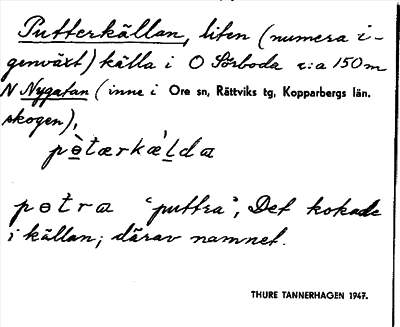 Putterkällan, liten (numera i-
genväxt) källa i O Sörboda c:a 150 m
N Nygatan (inne i Ore sn, Rättviks tg, Kopparbergs län.
skogen),
pɵ̀tærkæ'ḷdɑ
pɵtrɑ "puttra"; Det kokade
i källan; därav namnet.
THURE TANNERHAGEN 1947.